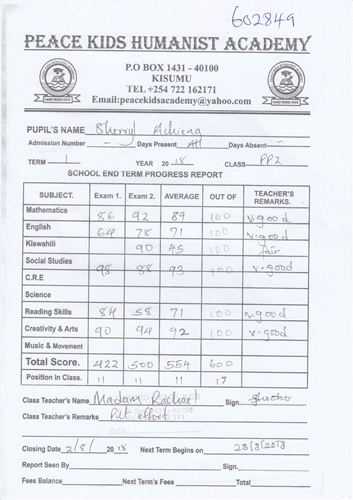 602849
PEACE KIDS HUMANIST ACADEMY
P.O BOX 1431 - 40100
KISUMU
TEL +254 722 162171
Email:peacekidsacademy@yahoo.com
PUPIL'S NAME Sherryl Adhiena
Admission Number - Days Present All Days Absent -
TERM 1 YEAR 2018 CLASS PP2
SCHOOL END TERM PROGRESS REPORT
SUBJECT. Exam 1. Exam 2. AVERAGE OUT OF TEACHER'S REMARKS.
Mathematics 86 92 89 100 v.good
English 64 78 71 100 v.good
Kiswahili 90 45 100 fair
Social Studies 98 88 93 100 v.good
C.R.E
Science
Reading Skills 84 58 71 100 v.good
Creativity & Arts 90 94 92 100 v.good
Music & Movement
Total Score. 422 500 554 600
Position in Class. 11 11 11 17
Class Teacher's Name Madam Rachael Sign.
Class Teacher's Remarks Put effort
Closing Date 2/8/ 2018 Next Term Begins on 28/8/2018
Report Seen By Sign.
Fees Balance Next Term's Fees Total